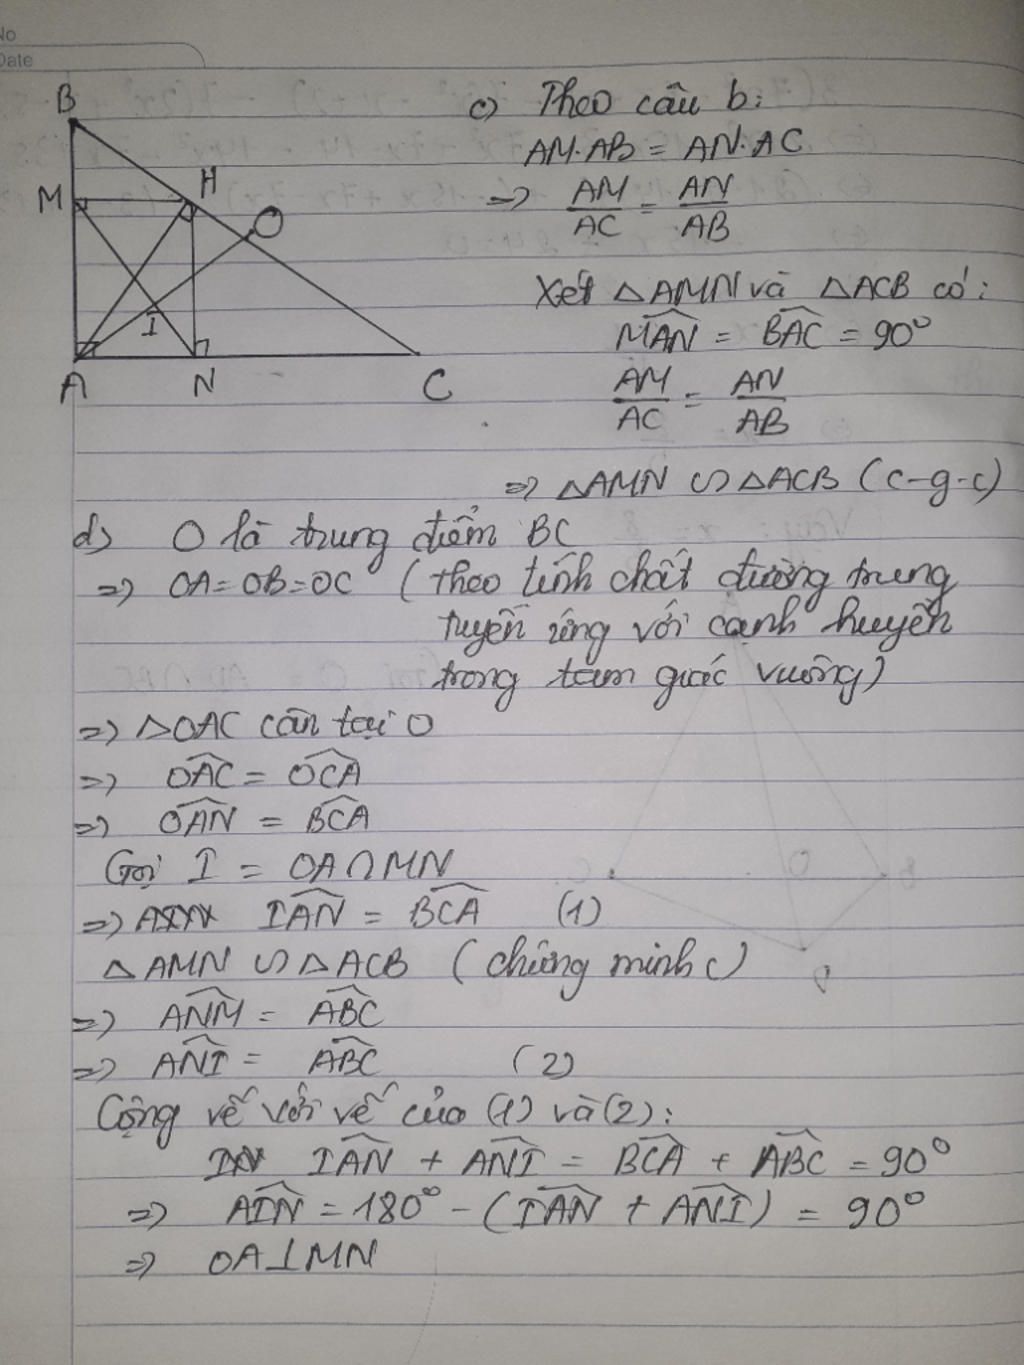 No
Date
B
M
H
O
I
A
N
C
c) Theo câu b:
AM.AB = AN.AC
=> AM/AC = AN/AB
Xét △AMN và △ACB có:
MAN̂ = BAĈ = 90°
AM/AC = AN/AB
=> △AMN ∽ △ACB (c-g-c)
d) O là trung điểm BC
=> OA=OB=OC (theo tính chất đường trung
tuyến ứng với cạnh huyền
trong tam giác vuông)
=> △OAC cân tại O
=> OAĈ = OCÂ
=> OAN̂ = BCÂ
Gọi I = OA∩MN
=> IAN̂ = BCÂ (1)
△AMN ∽ △ACB (chứng minh c)
=> ANM̂ = ABĈ
=> ANÎ = ABĈ (2)
Cộng vế với vế của (1) và (2):
IAN̂ + ANÎ = BCÂ + ABĈ = 90°
=> AIN̂ = 180° - (IAN̂ + ANÎ) = 90°
=> OA⊥MN